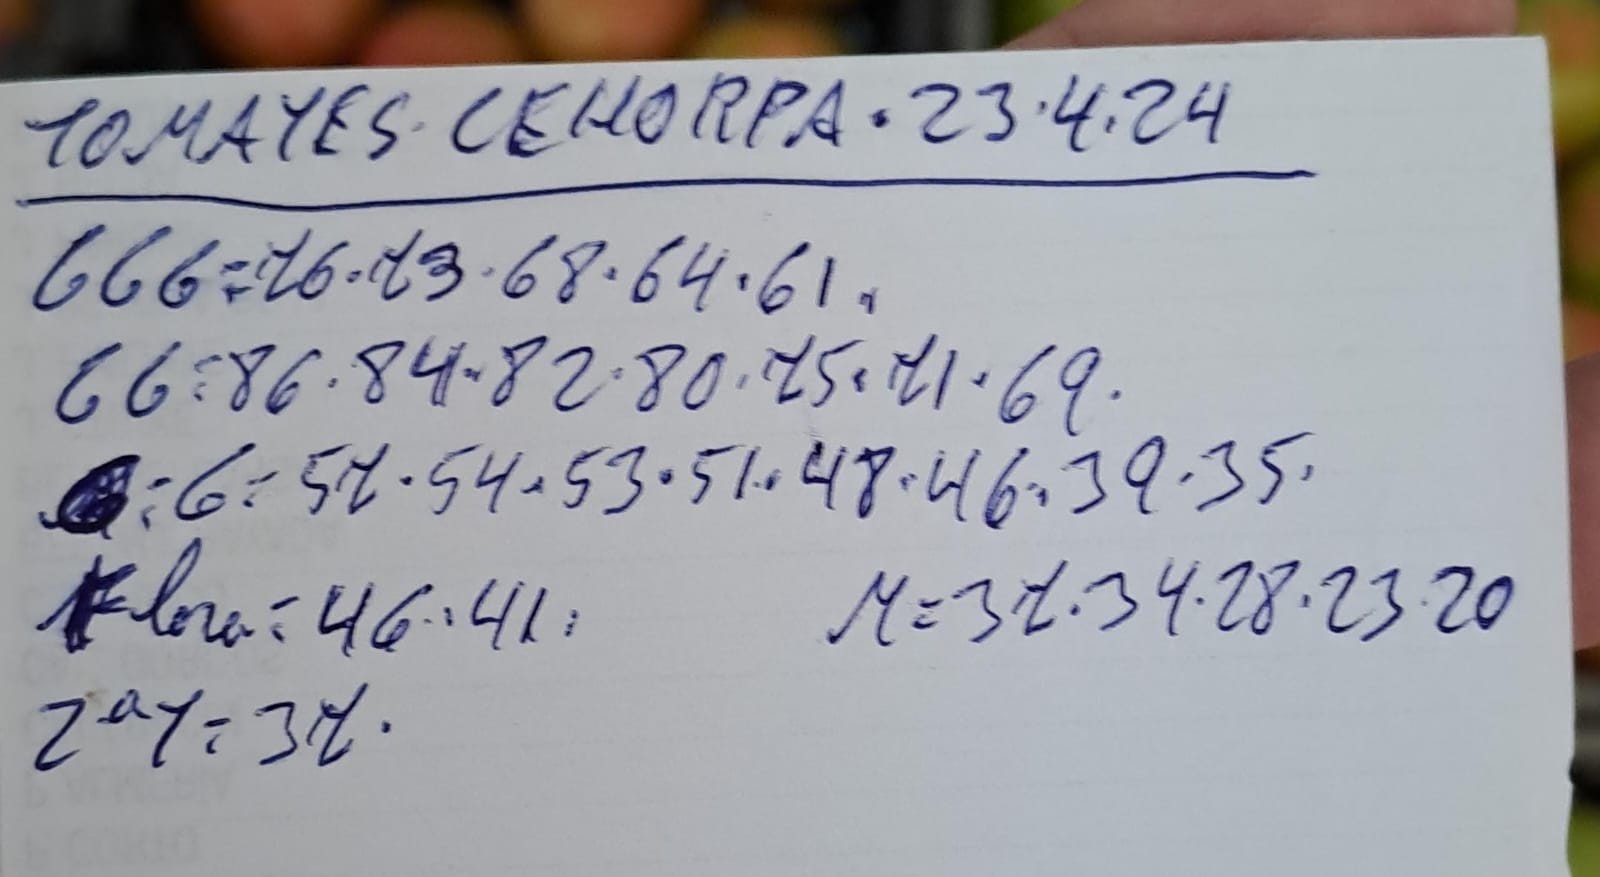 TOMATES CEHORPA. 23.4.24
GGG=76.73.68.64.61.
GG=86.84.82.80.75.71.69.
=G=57.54.53.51.48.46.39.35.
lora=46.41. M=37.34.28.23.20
2ªT=37.